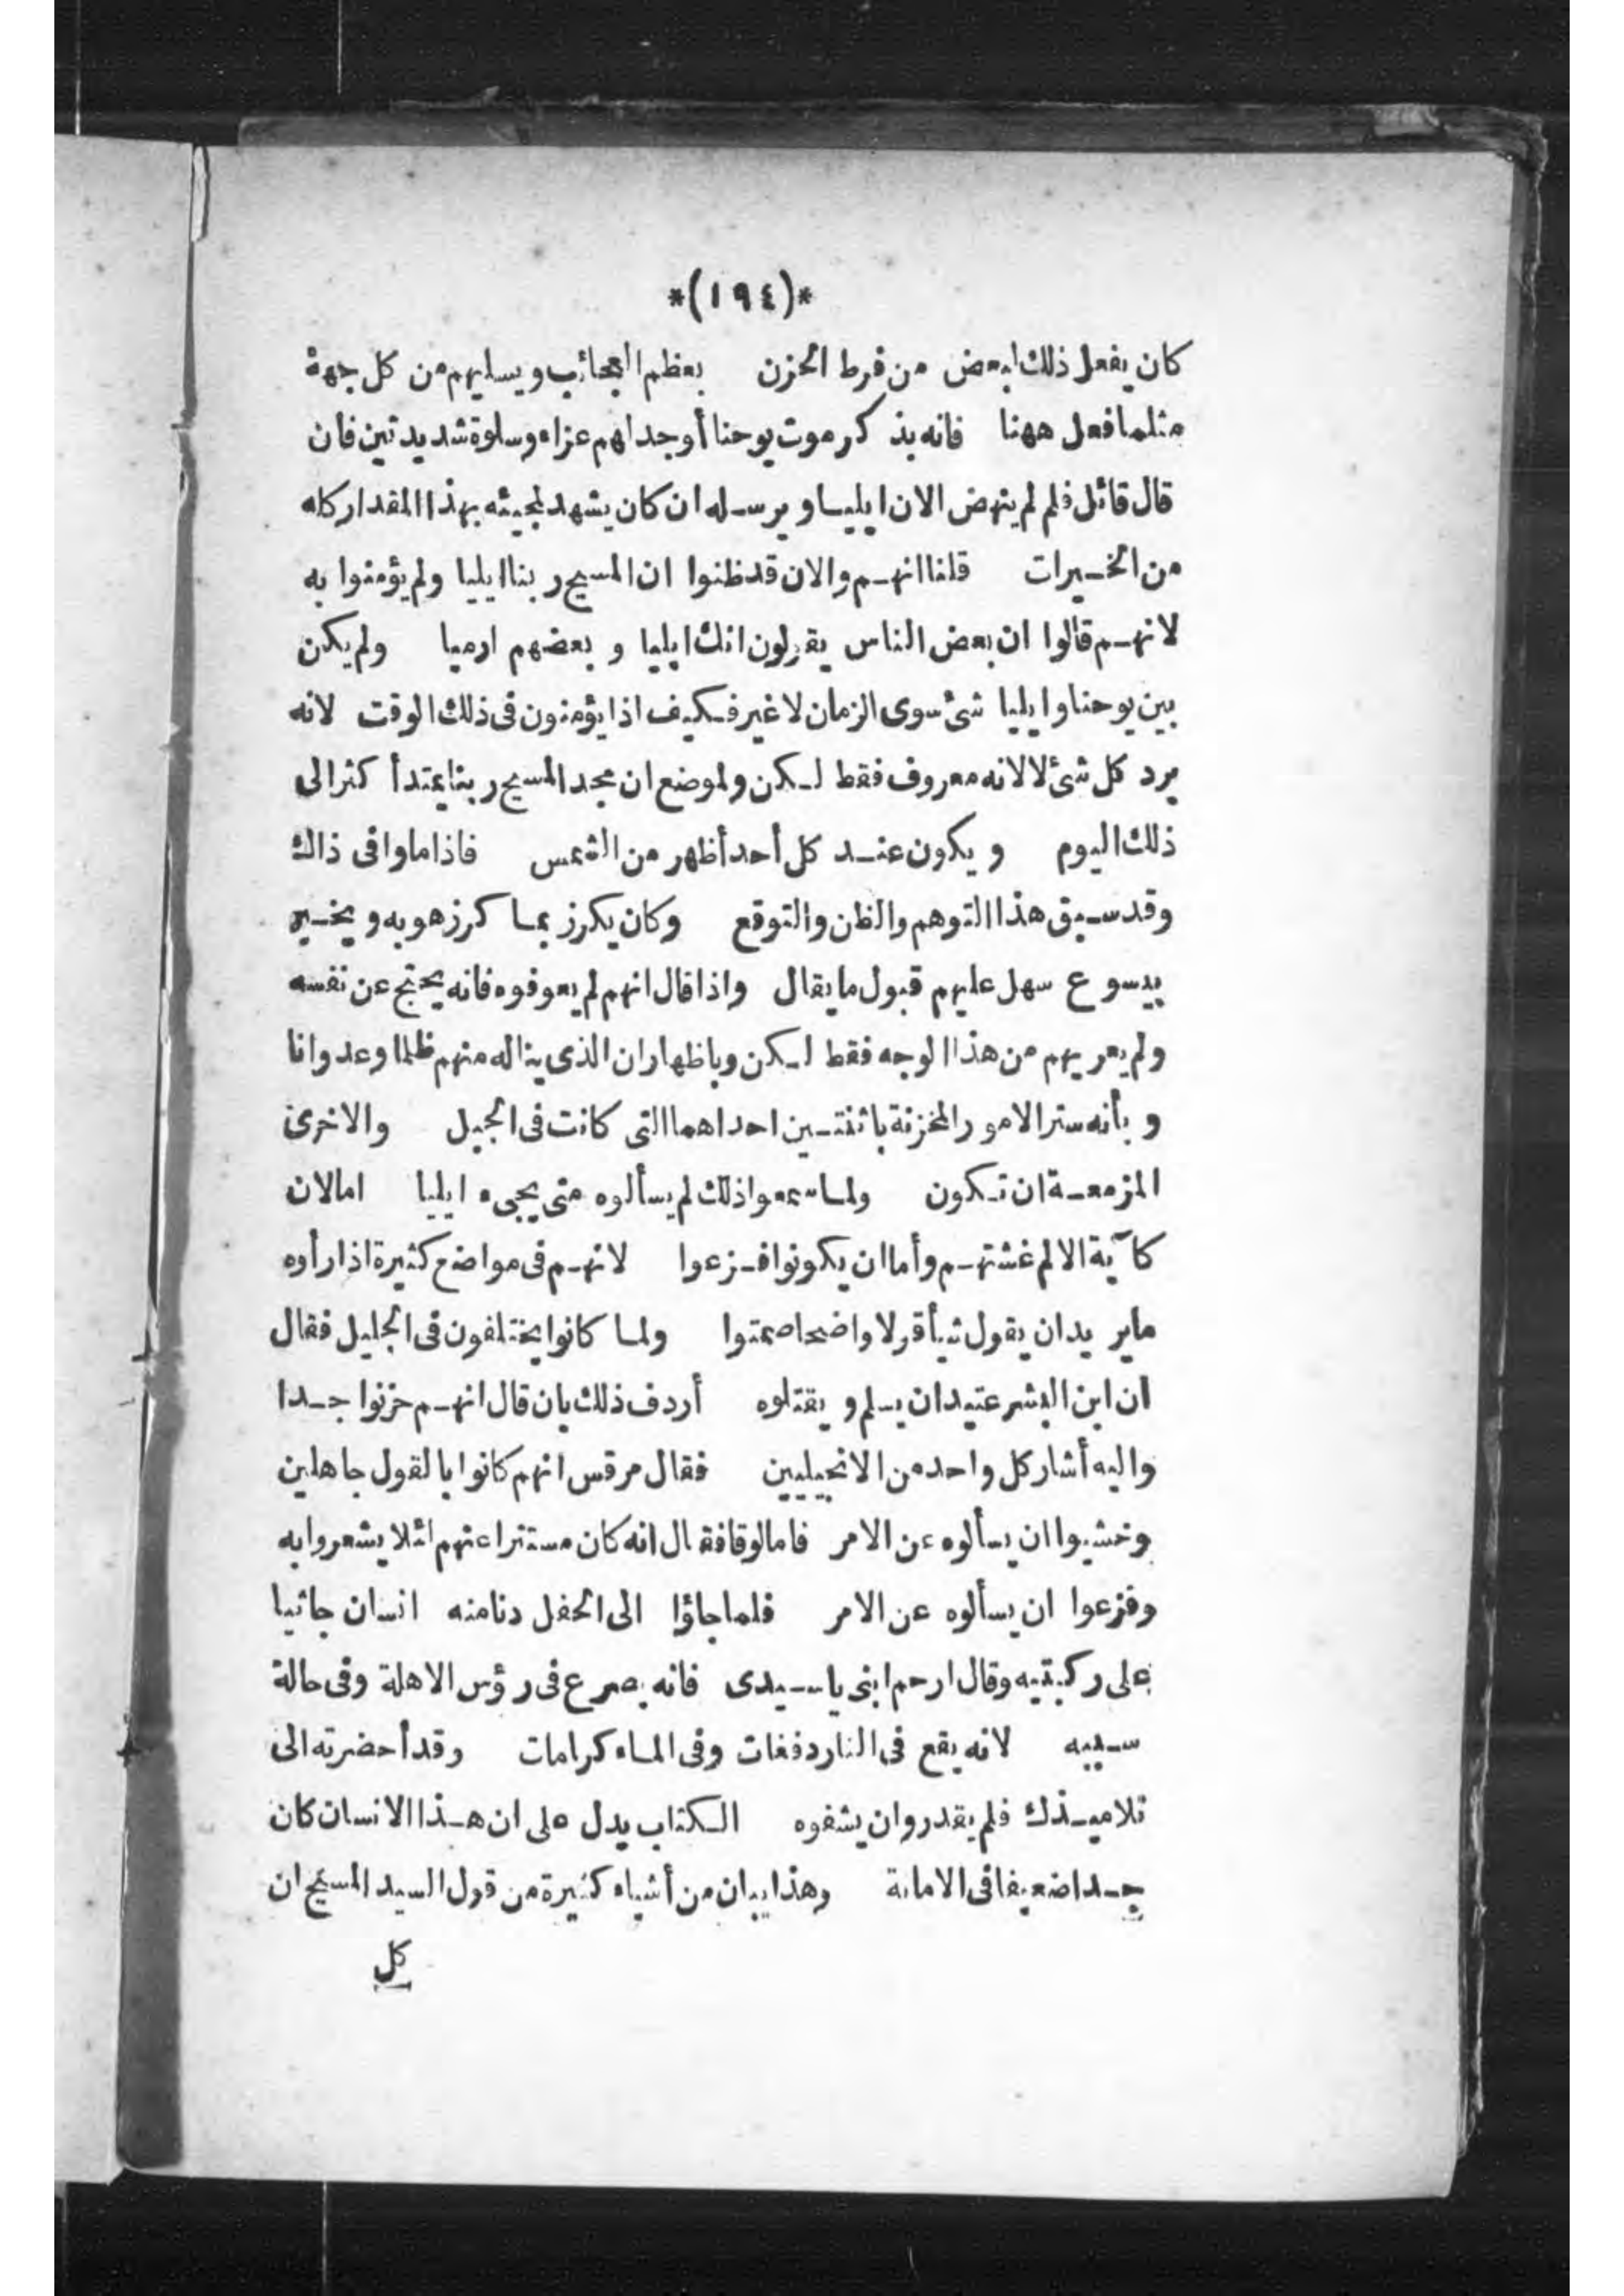 *(١٩٤)*
كان يفعل ذلك لبعض من فرط الحزن بعظم العجائب ويسليهم من كل جهة
مثلما فعل ههنا فانه بذكر موت يوحنا أوجد لهم عزاء وسلوة شديدتين فان
قال قائل فلم لم ينهض الان ايليا ويرسله ان كان يشهد لمجيئه بهذا المقدار كله
من الخيرات قلنا انهم والان قد ظنوا ان المسيح ربنا ايليا ولم يؤمنوا به
لانهم قالوا ان بعض الناس يقولون انك ايليا وبعضهم ارميا ولم يكن
بين يوحنا وايليا شئ سوى الزمان لا غير فكيف اذا يؤمنون فى ذلك الوقت لانه
يرد كل شئ لا لانه معروف فقط لكن ولموضع ان مجد المسيح ربنا يمتد أكثر الى
ذلك اليوم ويكون عند كل أحد أظهر من الشمس فاذا ما وافى ذاك
وقد سبق هذا التوهم والظن والتوقع وكان يكرز بما كرز هو به ويخبر
بيسوع سهل عليهم قبول ما يقال واذا قال انهم لم يعوفوه فانه يحتج عن نفسه
ولم يعريهم من هذا الوجه فقط لكن وباظهار ان الذى يناله منهم ظلما وعدوانا
وبأنه ستر الامور المحزنة باثنتين احداهما التى كانت فى الجبل والاخرى
المزمعة ان تكون ولما سمعوا ذلك لم يسألوه متى يجىء ايليا اما لان
كآبة الالم غشتهم وأما ان يكونوا فزعوا لانهم فى مواضع كثيرة اذا رأوه
ما يريد ان يقول شيأ قولا واضحا صمتوا ولما كانوا يختلفون فى الجليل فقال
ان ابن البشر عتيد ان يسلم ويقتلوه أردف ذلك بان قال انهم حزنوا جدا
واليه أشار كل واحد من الانجيليين فقال مرقس انهم كانوا بالقول جاهلين
وخشيوا ان يسألوه عن الامر فاما لوقا فقال انه كان مستترا عنهم لئلا يشعروا به
وفزعوا ان يسألوه عن الامر فلما جاؤا الى الحفل دنا منه انسان جاثيا
على ركبتيه وقال ارحم ابنى يا سيدى فانه يصرع فى رؤس الاهلة وفى حالة
سيئه لانه يقع فى النار دفعات وفى الماء كرامات وقد أحضرته الى
تلاميذك فلم يقدروا ان يشفوه الكتاب يدل على ان هذا الانسان كان
جدا ضعيفا فى الامانة وهذا يبان من أشياء كثيرة من قول السيد المسيح ان
كل